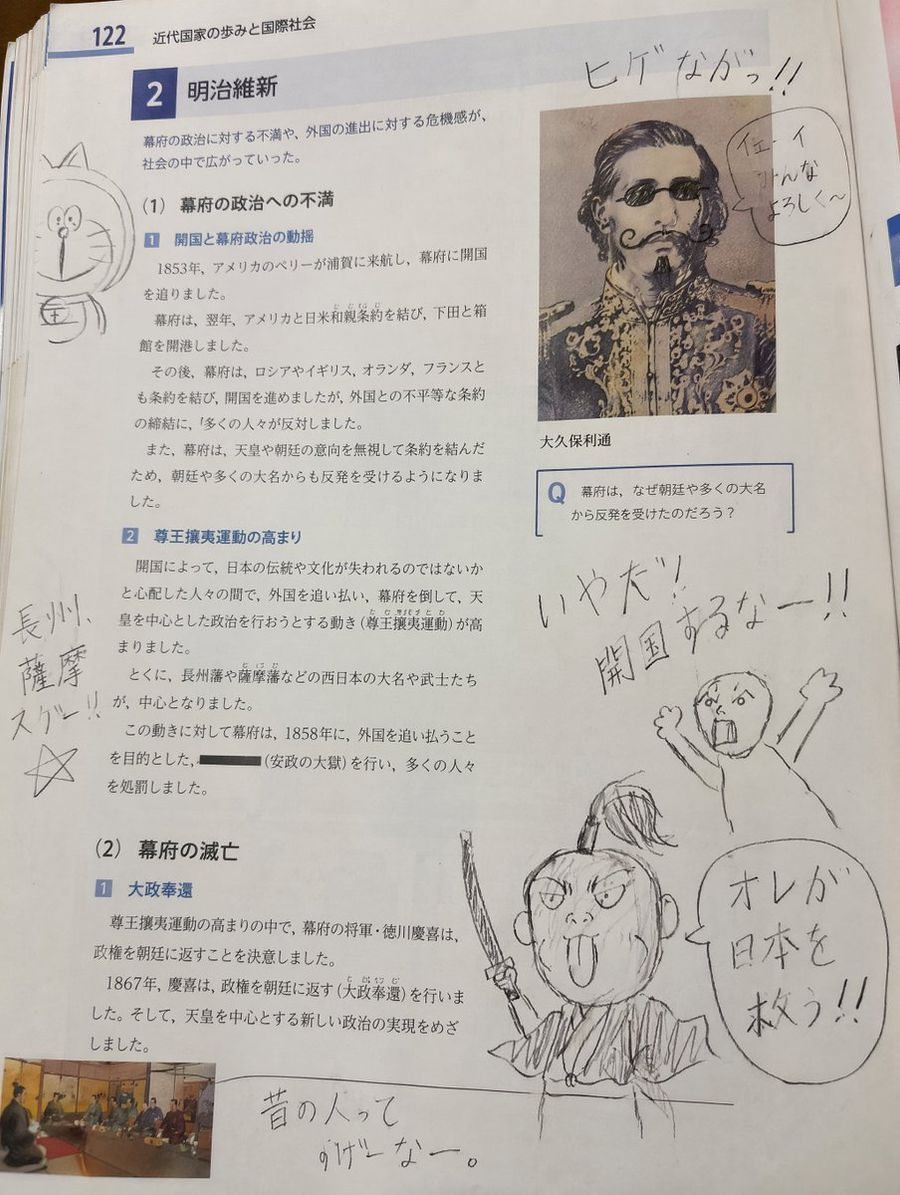 122
近代国家の歩みと国際社会
2 明治維新
幕府の政治に対する不満や、外国の進出に対する危機感が、
社会の中で広がっていった。
(1) 幕府の政治への不満
1 開国と幕府政治の動揺
1853年、アメリカのペリーが浦賀に来航し、幕府に開国
を迫りました。
幕府は、翌年、アメリカと日米和親条約を結び、下田と箱
館を開港しました。
その後、幕府は、ロシアやイギリス、オランダ、フランスと
も条約を結び、開国を進めましたが、外国との不平等な条約
の締結に、多くの人々が反対しました。
また、幕府は、天皇や朝廷の意向を無視して条約を結んだ
ため、朝廷や多くの大名からも反発を受けるようになりま
した。
2 尊王攘夷運動の高まり
開国によって、日本の伝統や文化が失われるのではないか
と心配した人々の間で、外国を追い払い、幕府を倒して、天
皇を中心とした政治を行おうとする動き(尊王攘夷運動)が高
まりました。
とくに、長州藩や薩摩藩などの西日本の大名や武士たち
が、中心となりました。
この動きに対して幕府は、1858年に、外国を追い払うこと
を目的とした、(安政の大獄)を行い、多くの人々
を処罰しました。
(2) 幕府の滅亡
1 大政奉還
尊王攘夷運動の高まりの中で、幕府の将軍・徳川慶喜は、
政権を朝廷に返すことを決意しました。
1867年、慶喜は、政権を朝廷に返す(大政奉還)を行いま
した。そして、天皇を中心とする新しい政治の実現をめざ
しました。
長州、
薩摩
スゲー!!
ヒゲながっ!!
イェーイ
みんな
よろしく〜
大久保利通
Q 幕府は、なぜ朝廷や多くの大名
から反発を受けたのだろう?
いやだ!!
開国するなー!!
オレが
日本を
救う!!
昔の人って
すげーなー。